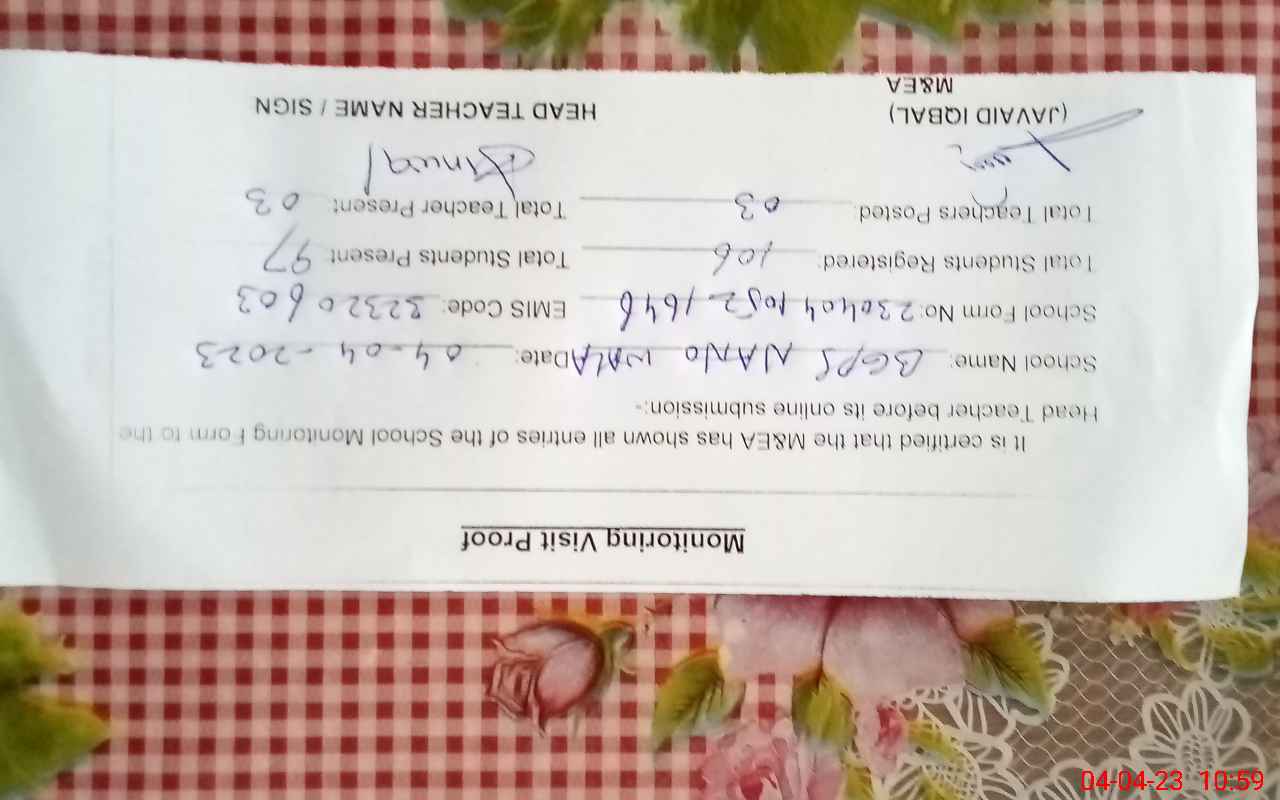 Monitoring Visit Proof
It is certified that the M&EA has shown all entries of the School Monitoring Form to the
Head Teacher before its online submission:-
School Name: BGPS NANO WALA Date: 04-04-2023
School Form No: 2304041052-1646 EMIS Code: 32320603
Total Students Registered: 106 Total Students Present: 97
Total Teachers Posted: 03 Total Teacher Present: 03
(JAVAID IQBAL) HEAD TEACHER NAME / SIGN
M&EA
04-04-23 10:59